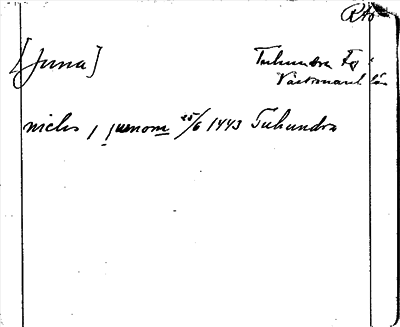 RAÖ
[Juna]
Tuhundra
Västmanl län
niclis j junom 25/6 1443 Tuhundra